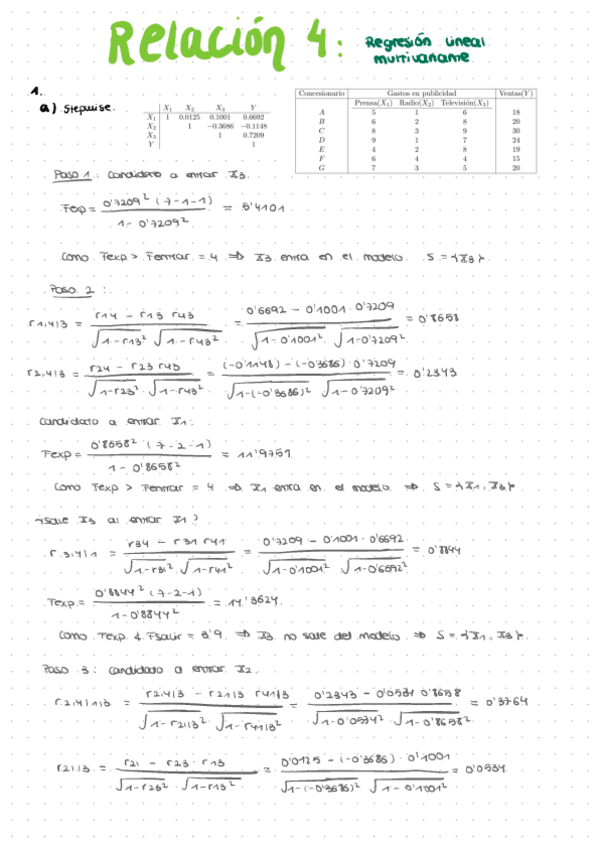 Relación 4: Regresión lineal
multivariante
1.
a) Stepwise.
X1 X2 X3 Y
X1 1 0.0125 0.1001 0.6692
X2 1 −0.3686 −0.1148
X3 1 0.7209
Y 1
Concesionario Gastos en publicidad Ventas(Y)
Prensa(X1) Radio(X2) Televisión(X3)
A 5 1 6 18
B 6 2 8 20
C 8 3 9 30
D 9 1 7 24
E 4 2 8 19
F 6 4 4 15
G 7 3 5 20
Paso 1: Candidato a entrar X3.
Fexp = 0'7209² (7-1-1) / 1-0'7209² = 5'4101.
Como Fexp > Fentrar = 4 ⇒ X3 entra en el modelo. S = {X3}.
Paso 2:
r1,4|3 = r14 - r13 r43 / √1-r13² √1-r43² = 0'6692 - 0'1001 · 0'7209 / √1-0'1001² √1-0'7209² = 0'8658
r2,4|3 = r24 - r23 r43 / √1-r23² √1-r43² = (-0'1148) - (-0'3686) · 0'7209 / √1-(-0'3686)² √1-0'7209² = 0'2343
Candidato a entrar X1:
Fexp = 0'8658² (7-2-1) / 1-0'8658² = 11'9751.
Como Fexp > Fentrar = 4 ⇒ X1 entra en el modelo ⇒ S = {X1, X3}.
¿Sale X3 al entrar X1?
r3,4|1 = r34 - r31 r41 / √1-r31² · √1-r41² = 0'7209 - 0'1001 · 0'6692 / √1-0'1001² √1-0'6692² = 0'8844
Fexp = 0'8844² (7-2-1) / 1-0'8844² = 14'3624.
Como Fexp ≮ Fsalir = 3'9 ⇒ X3 no sale del modelo ⇒ S = {X1, X3}.
Paso 3: Candidato a entrar X2.
r2,4|1,3 = r2,4|3 - r21|3 r41|3 / √1-r21|3² · √1-r41|3² = 0'2343 - 0'0534 0'8658 / √1-0'0534² · √1-0'8658² = 0'3764
r21|3 = r21 - r23 · r13 / √1-r23² · √1-r13² = 0'0125 - (-0'3686) · 0'1001 / √1-(-0'3686)² √1-0'1001² = 0'0534